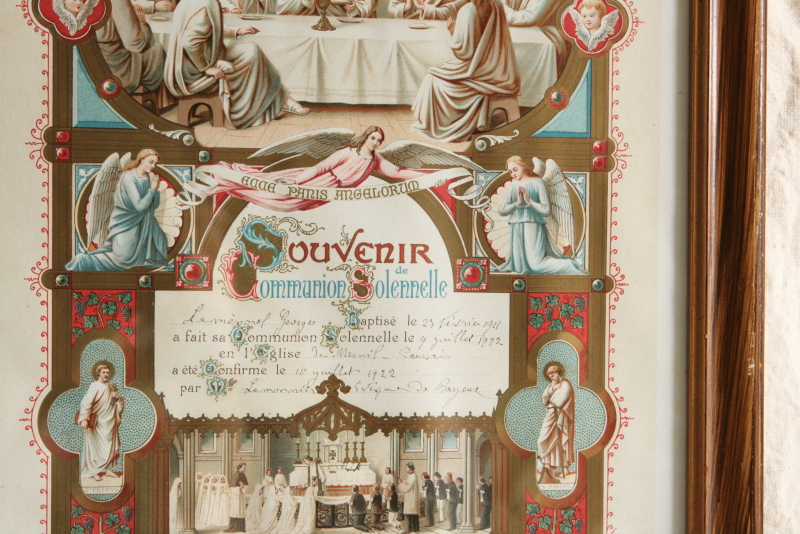 ECCE PANIS ANGELORUM
SOUVENIR
de
Communion Solennelle
Georges Baptisé le 23 février
a fait sa Communion Solennelle le 9 juillet 1922
en l'Église du Mesnil-
a été Confirmé le 10 juillet 1922
par Mgr Lemonnier Evêque de Bayeux